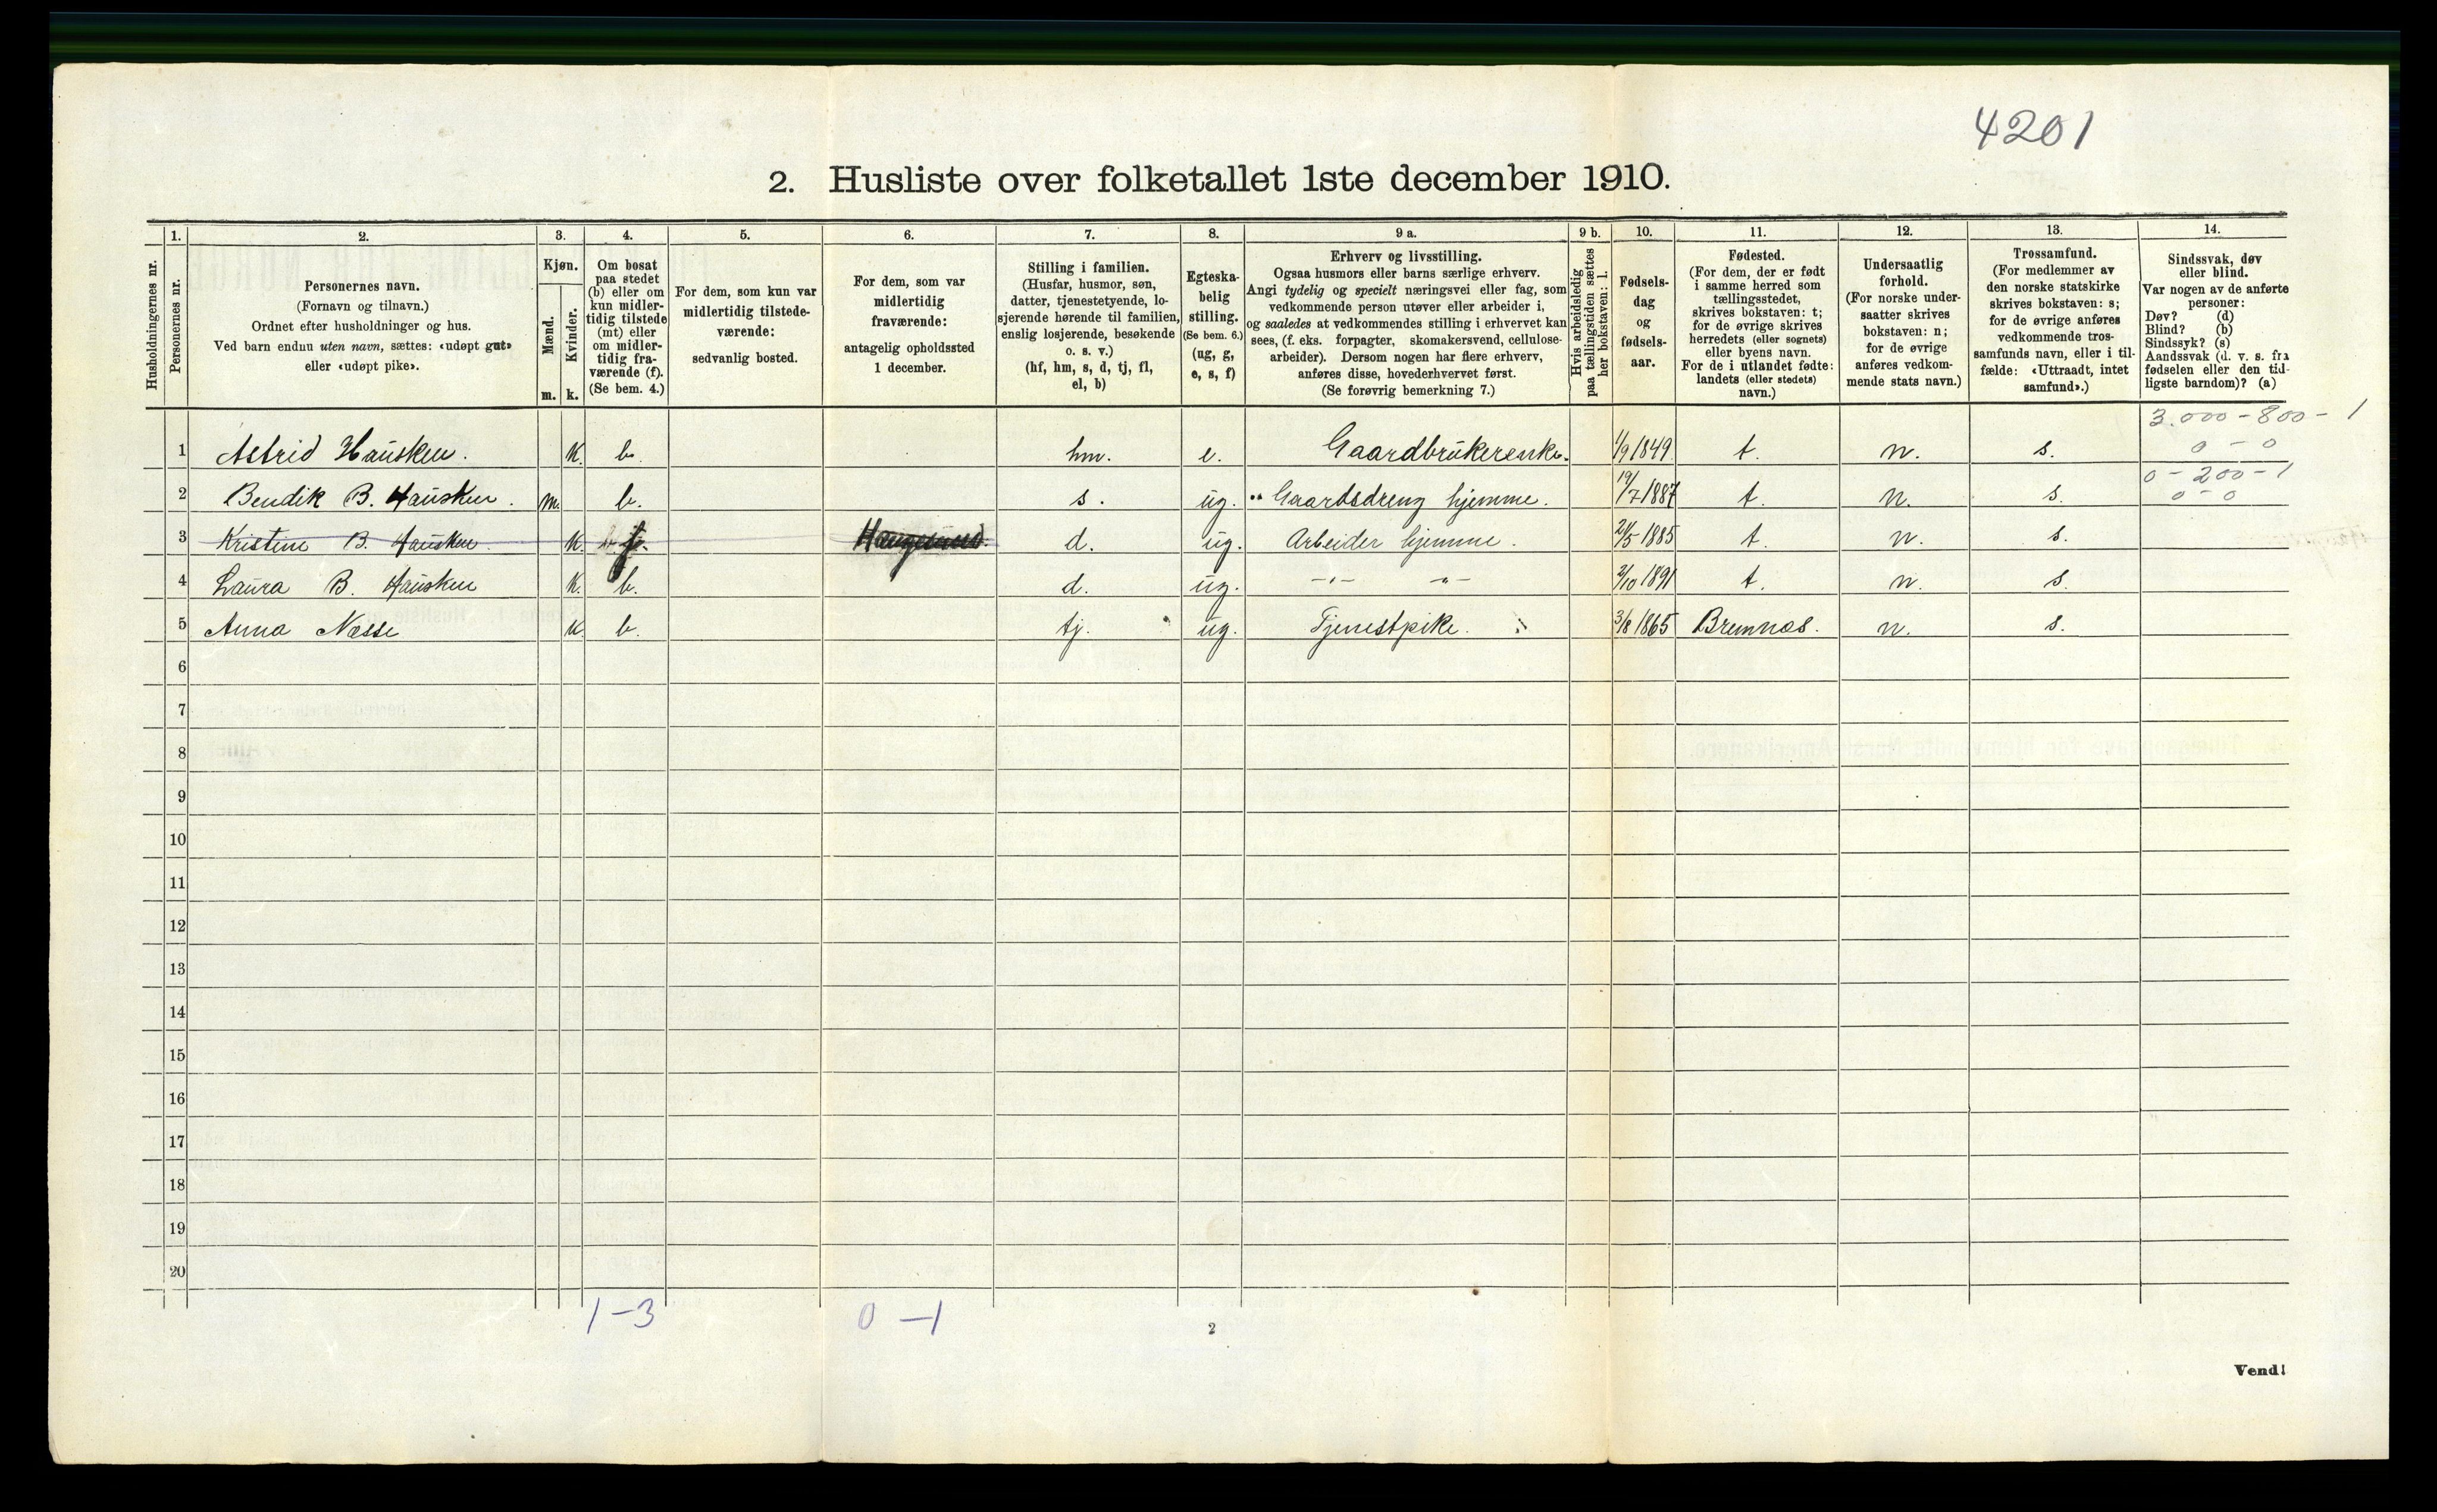 4201
2. Husliste over folketallet 1ste december 1910.
Husholdningernes nr.
1.
Personernes nr.
2.
Personernes navn.
(Fornavn og tilnavn.)
Ordnet efter husholdninger og hus.
Ved barn endnu uten navn, sættes: «udøpt gut»
eller «udøpt pike».
3.
Kjøn.
Mænd.
Kvinder.
m. k.
4.
Om bosat
paa stedet
(b) eller om
kun midler-
tidig tilstede
(mt) eller
om midler-
tidig fra-
værende (f).
(Se bem. 4.)
5.
For dem, som kun var
midlertidig tilstede-
værende:
sedvanlig bosted.
6.
For dem, som var
midlertidig
fraværende:
antagelig opholdssted
1 december.
7.
Stilling i familien.
(Husfar, husmor, søn,
datter, tjenestetyende, lo-
sjerende hørende til familien,
enslig losjerende, besøkende
o. s. v.)
(hf, hm, s, d, tj, fl,
el, b)
8.
Egteska-
belig
stilling.
(Se bem. 6.)
(ug, g,
e, s, f)
9 a.
Erhverv og livsstilling.
Ogsaa husmors eller barns særlige erhverv.
Angi tydelig og specielt næringsvei eller fag, som
vedkommende person utøver eller arbeider i,
og saaledes at vedkommendes stilling i erhvervet kan
sees, (f. eks. forpagter, skomakersvend, cellulose-
arbeider). Dersom nogen har flere erhverv,
anføres disse, hovederhvervet først.
(Se forøvrig bemerkning 7.)
9 b.
Hvis arbeidsledig
paa tællingstiden sættes
her bokstaven: l.
10.
Fødsels-
dag
og
fødsels-
aar.
11.
Fødested.
(For dem, der er født
i samme herred som
tællingsstedet,
skrives bokstaven: t;
for de øvrige skrives
herredets (eller sognets)
eller byens navn.
For de i utlandet fødte:
landets (eller stedets)
navn.)
12.
Undersaatlig
forhold.
(For norske under-
saatter skrives
bokstaven: n;
for de øvrige
anføres vedkom-
mende stats navn.)
13.
Trossamfund.
(For medlemmer av
den norske statskirke
skrives bokstaven: s;
for de øvrige anføres
vedkommende tros-
samfunds navn, eller i til-
fælde: «Uttraadt, intet
samfund».)
14.
Sindssvak, døv
eller blind.
Var nogen av de anførte
personer:
Døv? (d)
Blind? (b)
Sindssyk? (s)
Aandssvak (d. v. s. fra
fødselen eller den tid-
ligste barndom)? (a)
3.000 - 800 - 1
1 Astrid Hausken. K. b. hm. e. Gaardbrukerenke. 1/9 1849 t. n. s. 0 - 0
0 - 200 - 1
2 Bendik B. Hausken. m. b. s. ug. Gaardsdreng hjemme. 19/7 1887 t. n. s. 0 - 0
3 Kristine B. Hausken. K. f. Haugesund. d. ug. Arbeider hjemme. 24/5 1885 t. n. s.
4 Laura B. Hausken K. b. d. ug. -"- -"- 2/10 1891 t. n. s.
5 Anna Næsse K. b. tj. ug. Tjenestpike. 3/8 1865 Bremnæs. n. s.
6
7
8
9
10
11
12
13
14
15
16
17
18
19
20
1 - 3 0 - 1
2
Vend!